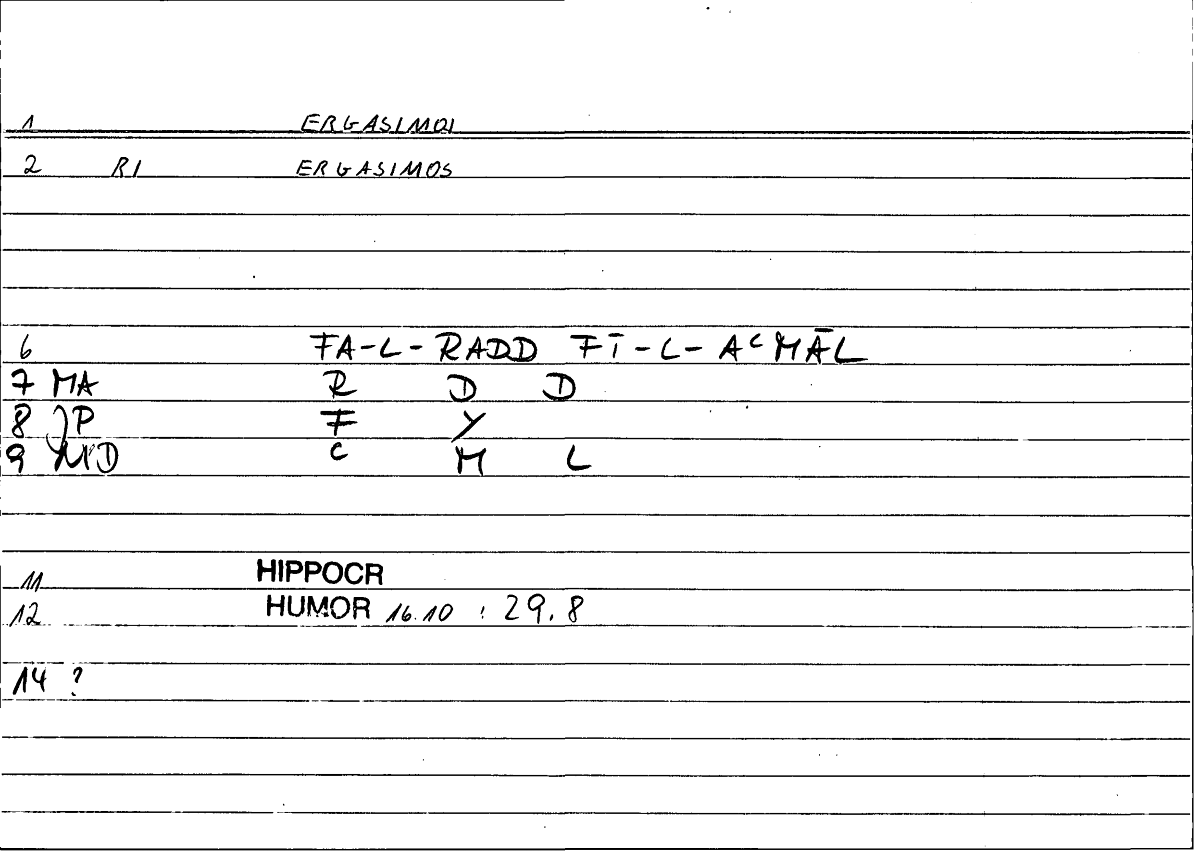 1 ERGASIMOI
2 RI ERGASIMOS
6 FA-L-RADD FĪ-L-AᶜMĀL
7 MA R D D
8 JP F Y
9 MD ᶜ M L
11 HIPPOCR
12 HUMOR 16.10 : 29.8
14 ?